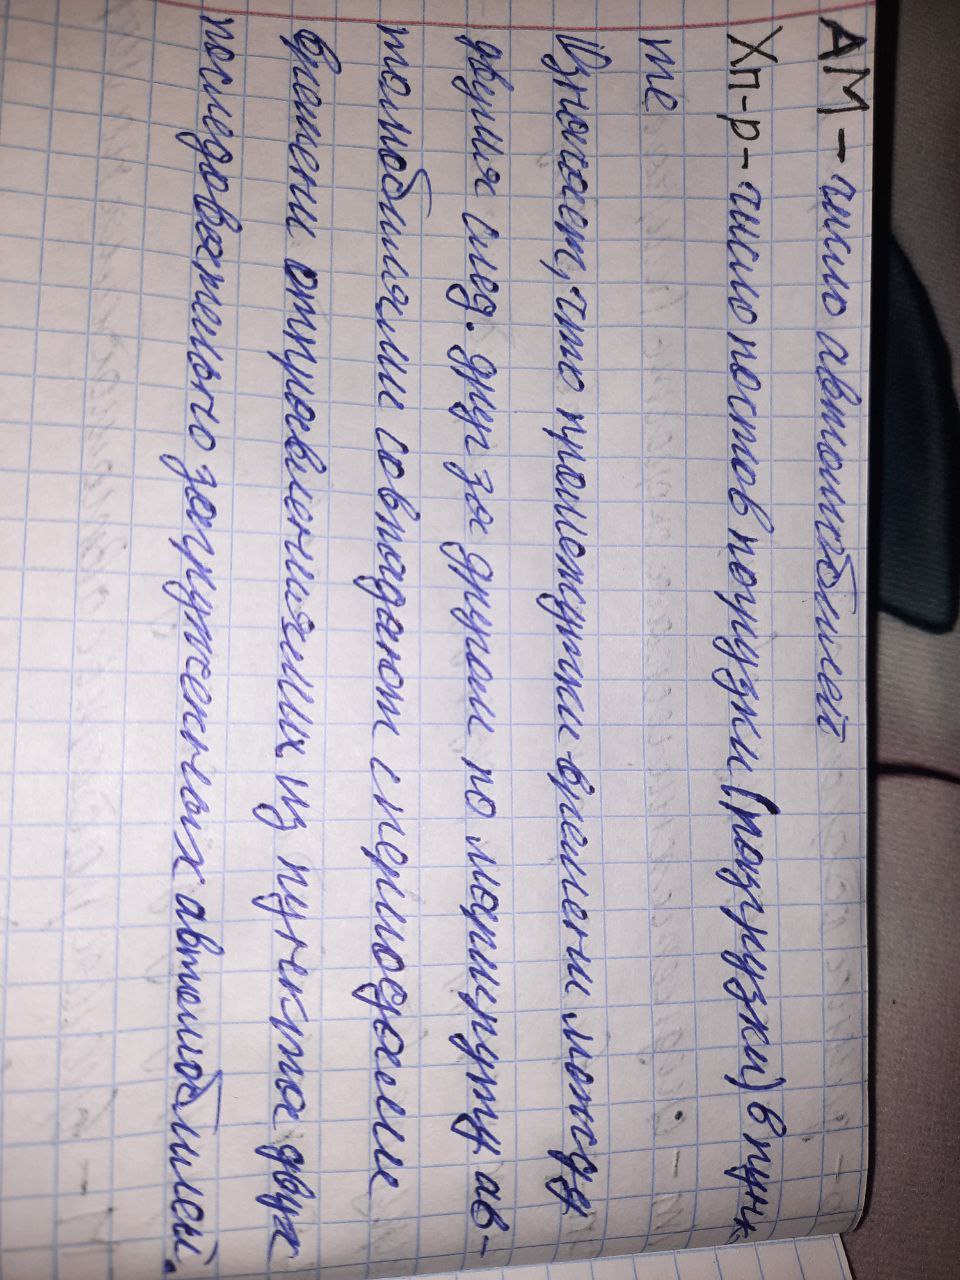 АМ - число автомобилей
Хп-р - число постов погрузки (разгрузки) в пунк
те
Означает, что промежутки времени между
двумя след. друг за другом по маршруту ав-
томобилями совпадают с периодами
времени отправлениями из пункта двух
последовательно загруженных автомобилей.